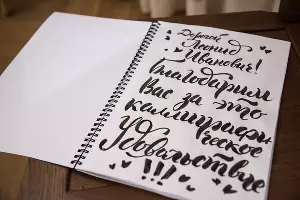 Дорогой
Леонид
Иванович!
Благодарим
Вас за это
каллиграфи
ческое
Удовольствие
!!!